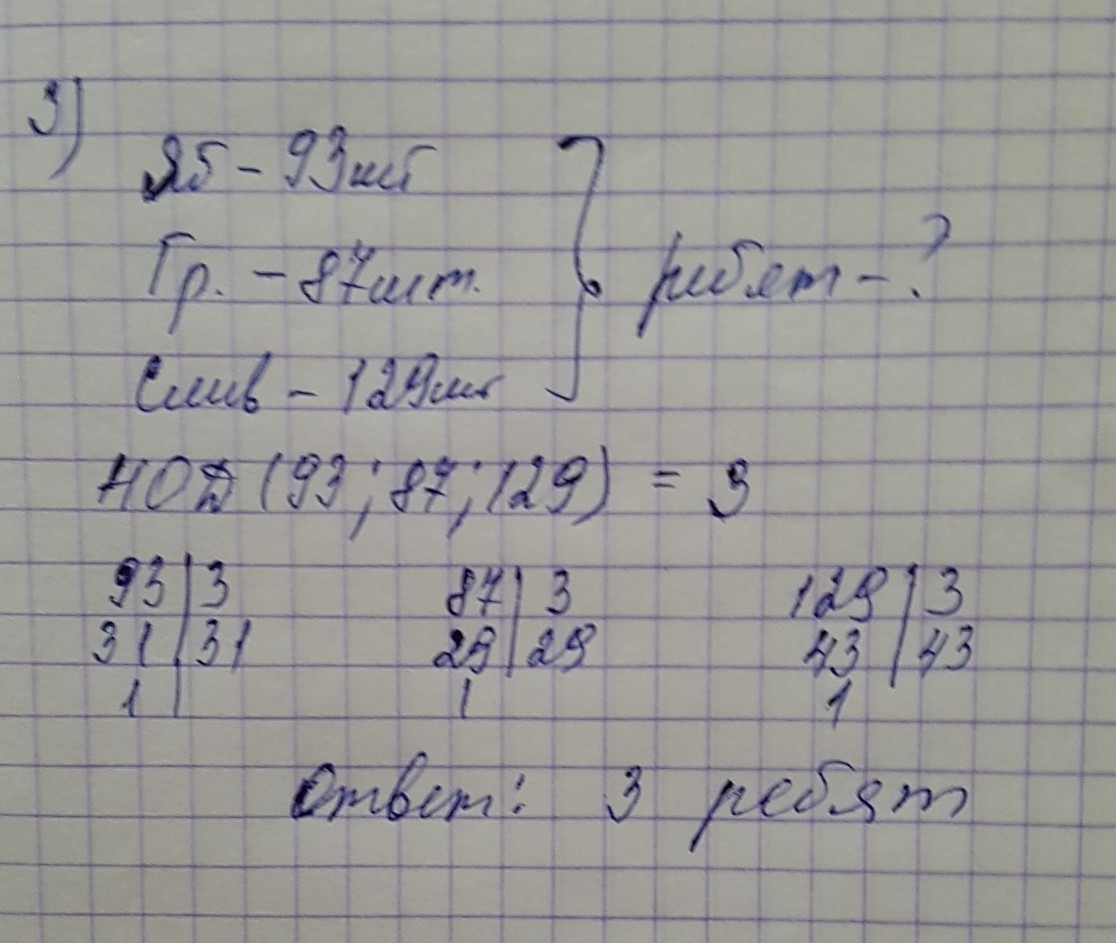 3)
Яб - 93шт
Гр. - 87шт.
Слив - 129шт
ребят - ?
НОД (93; 87; 129) = 3
93 | 3 87 | 3 129 | 3
31 | 31 29 | 29 43 | 43
1 | 1 1
Ответ: 3 ребят